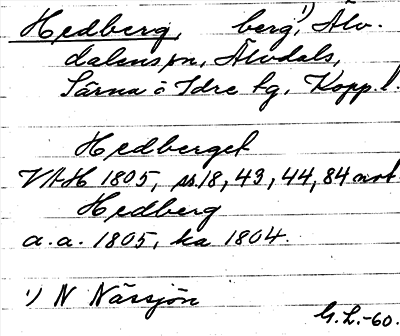 Hedberg, berg¹⁾, Älv-
dalens sn, Älvdals,
Särna o Idre tg, Kopp. l.
Hedberget
VAH 1805, ss. 18, 43, 44, 84 not
Hedberg
a.a. 1805, ka 1804.
¹⁾ N Närsjön
G.L.-60.